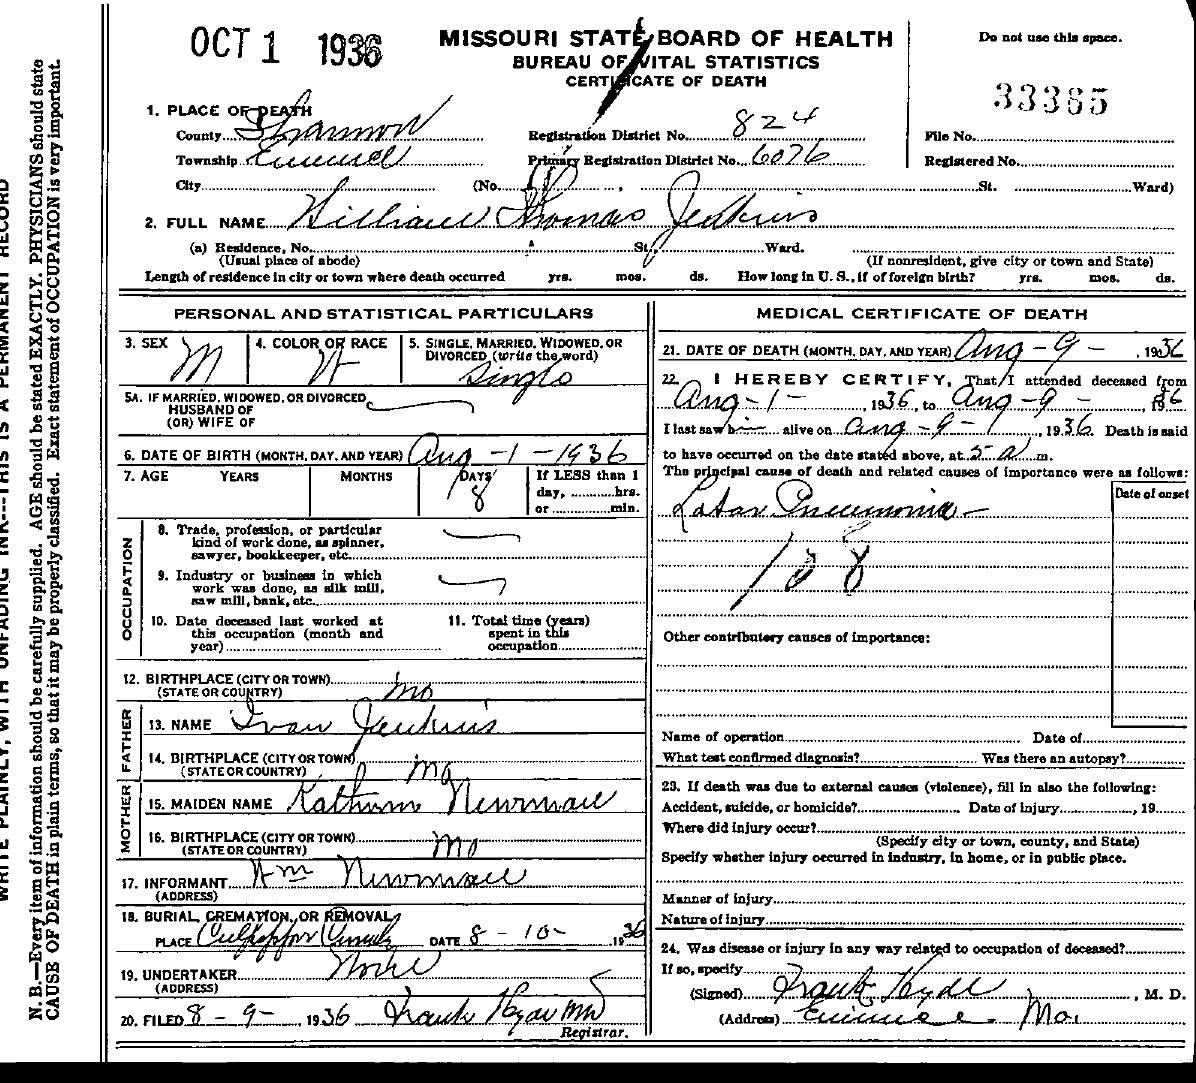 OCT 1 1936
MISSOURI STATE BOARD OF HEALTH
BUREAU OF VITAL STATISTICS
CERTIFICATE OF DEATH
Do not use this space.
33385
1. PLACE OF DEATH
County Shannon
Township
Registration District No. 824
Primary Registration District No. 6076
File No.
Registered No.
City (No. , St. Ward)
2. FULL NAME William Thomas Jenkins
(a) Residence, No. St. Ward.
(Usual place of abode) (If nonresident, give city or town and State)
Length of residence in city or town where death occurred yrs. mos. ds. How long in U. S., if of foreign birth? yrs. mos. ds.
PERSONAL AND STATISTICAL PARTICULARS
3. SEX M
4. COLOR OR RACE W
5. SINGLE, MARRIED, WIDOWED, OR
DIVORCED (write the word)
Single
5A. IF MARRIED, WIDOWED, OR DIVORCED
HUSBAND OF
(OR) WIFE OF
6. DATE OF BIRTH (MONTH, DAY, AND YEAR) Aug - 1 - 1936
7. AGE YEARS MONTHS DAYS 8
If LESS than 1
day, hrs.
or min.
OCCUPATION
8. Trade, profession, or particular
kind of work done, as spinner,
sawyer, bookkeeper, etc.
9. Industry or business in which
work was done, as silk mill,
saw mill, bank, etc.
10. Date deceased last worked at
this occupation (month and
year)
11. Total time (years)
spent in this
occupation
12. BIRTHPLACE (CITY OR TOWN)
(STATE OR COUNTRY) Mo
FATHER
13. NAME Ivan Jenkins
14. BIRTHPLACE (CITY OR TOWN)
(STATE OR COUNTRY) Mo
MOTHER
15. MAIDEN NAME Newman
16. BIRTHPLACE (CITY OR TOWN)
(STATE OR COUNTRY) Mo
17. INFORMANT Wm Newman
(ADDRESS)
18. BURIAL, CREMATION, OR REMOVAL
PLACE DATE 8 - 10 - 1936
19. UNDERTAKER None
(ADDRESS)
20. FILED 8 - 9 - , 1936 Frank Hyde MD
Registrar.
MEDICAL CERTIFICATE OF DEATH
21. DATE OF DEATH (MONTH, DAY, AND YEAR) Aug - 9 - , 1936
22. I HEREBY CERTIFY, That I attended deceased from
Aug - 1 - , 1936, to Aug - 9 - 1936
I last saw h alive on Aug - 9 - , 1936. Death is said
to have occurred on the date stated above, at 5 - a m.
The principal cause of death and related causes of importance were as follows:
Date of onset
Lobar Pneumonia -
108
Other contributory causes of importance:
Name of operation Date of
What test confirmed diagnosis? Was there an autopsy?
23. If death was due to external causes (violence), fill in also the following:
Accident, suicide, or homicide? Date of injury , 19
Where did injury occur?
(Specify city or town, county, and State)
Specify whether injury occurred in industry, in home, or in public place.
Manner of injury
Nature of injury
24. Was disease or injury in any way related to occupation of deceased?
If so, specify
(Signed) Frank Hyde , M. D.
(Address) Mo.
N. B.—Every item of information should be carefully supplied. AGE should be stated EXACTLY. PHYSICIANS should state
CAUSE OF DEATH in plain terms, so that it may be properly classified. Exact statement of OCCUPATION is very important.
WRITE PLAINLY, WITH UNFADING INK---THIS IS A PERMANENT RECORD